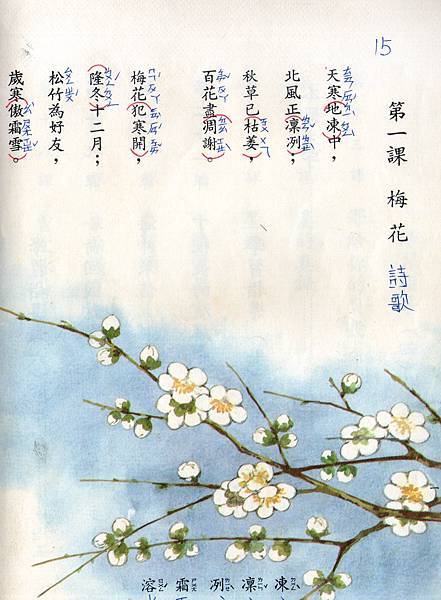 15
第一課 梅花 詩歌
天寒地凍中，
北風正凜冽，
秋草已枯萎，
百花盡凋謝。
梅花犯寒開，
隆冬十二月；
松竹為好友，
歲寒傲霜雪。
凍 凜 冽 霜 溶